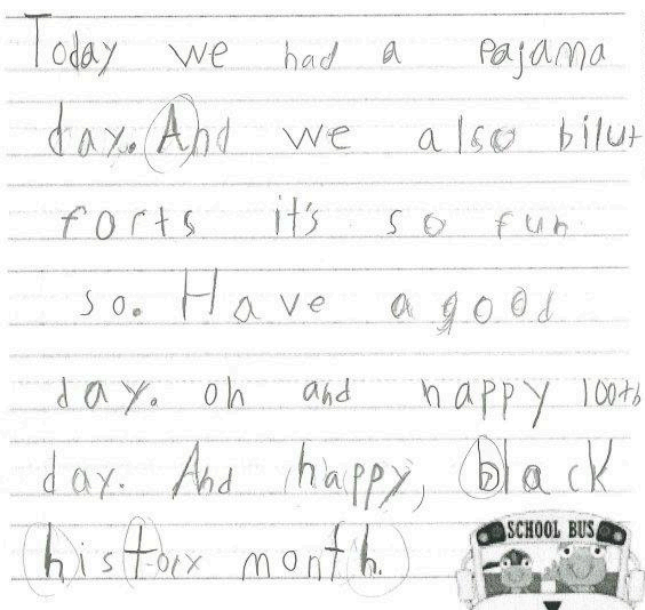 Today we had a pajama
day. And we also bilut
forts it's so fun
so. Have a good
day. oh and happy 100th
day. And happy, black
history month.
SCHOOL BUS